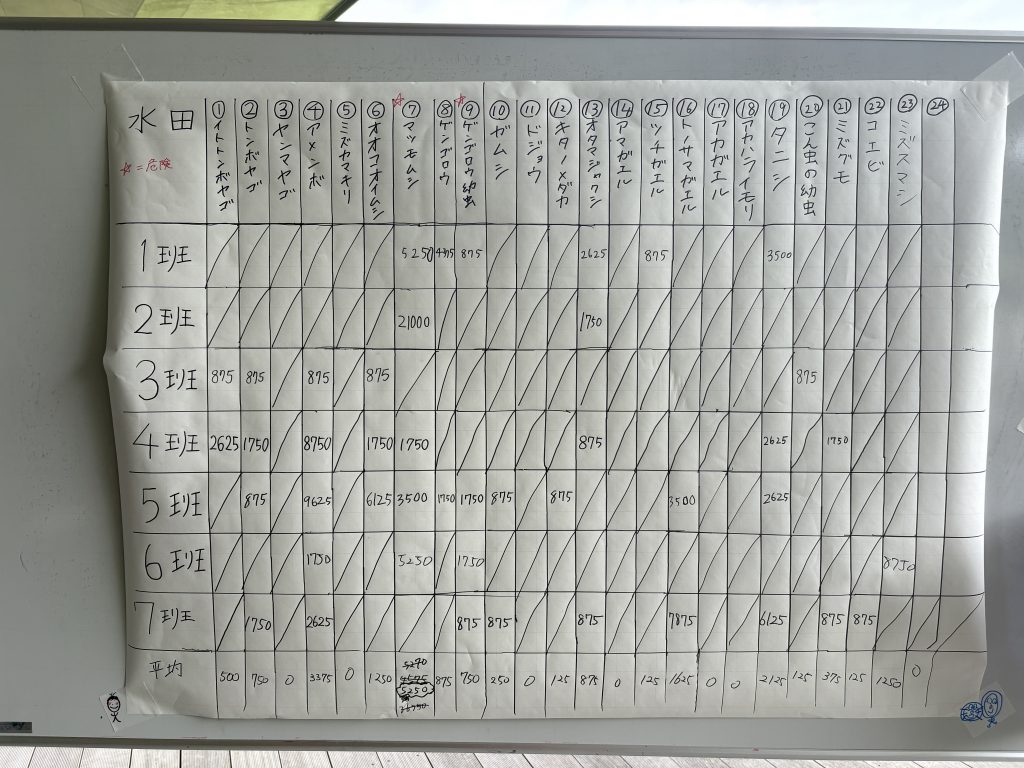 水田 ① イトトンボヤゴ ② トンボヤゴ ③ ヤンマヤゴ ④ アメンボ ⑤ ミズカマキリ ⑥ オオコオイムシ ☆ ⑦ マツモムシ ⑧ ゲンゴロウ ☆ ⑨ ゲンゴロウ幼虫 ⑩ ガムシ ⑪ ドジョウ ⑫ キタノメダカ ⑬ オタマジャクシ ⑭ アマガエル ⑮ ツチガエル ⑯ トノサマガエル ⑰ アカガエル ⑱ アカハライモリ ⑲ タニシ ⑳ こん虫の幼虫 ㉑ ミズグモ ㉒ コエビ ㉓ ミズスマシ ㉔
☆=危険
1班 5250 4375 875 2625 875 3500
2班 21000 1750
3班 875 875 875 875 875
4班 2625 1750 8750 1750 1750 875 2625 1750
5班 875 9625 6125 3500 1750 1750 875 875 3500 2625
6班 1750 5250 1750 8750
7班 1750 2625 875 875 875 7875 6125 875 875
平均 500 750 0 3375 0 1250 5250 875 750 250 0 125 875 0 125 1625 0 0 2125 125 375 125 1250 0